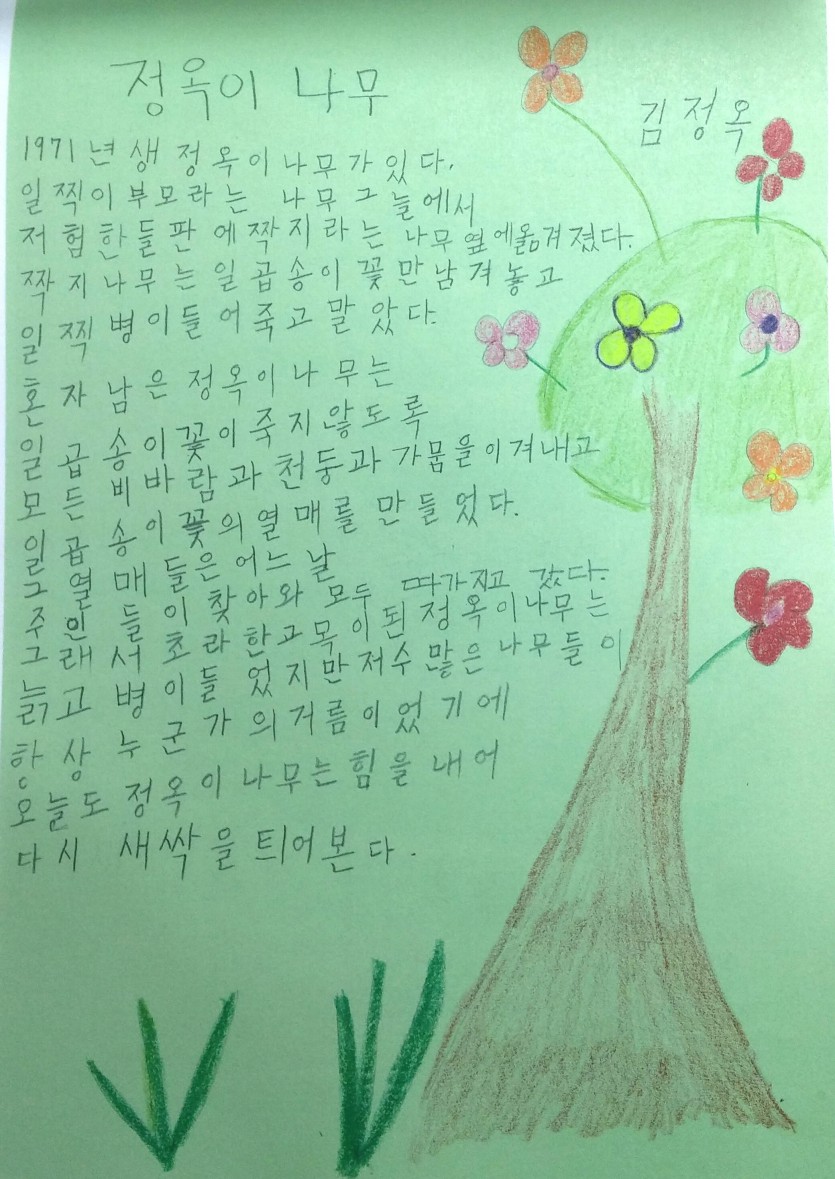 정옥이 나무
김정옥
1971년생 정옥이나무가 있다.
일찍이 부모라는 나무 그늘에서
저 험한들판에짝지라는 나무옆에옮겨졌다.
짝지나무는 일곱송이 꽃만남겨놓고
일찍 병이들어죽고말았다.
혼자 남은 정옥이나무는
일곱송이꽃이죽지않도록
모든 비바람과 천둥과 가뭄을이겨내고
일곱송이꽃의열매를 만들었다.
그 열매들은 어느날
주인들이 찾아와 모두 따가지고 갔다.
그래서 초라한고목이된 정옥이나무는
늙고 병이들었지만저수많은 나무들이
항상 누군가의거름이었기에
오늘도 정옥이나무는힘을내어
다시 새싹을 틔어본다.